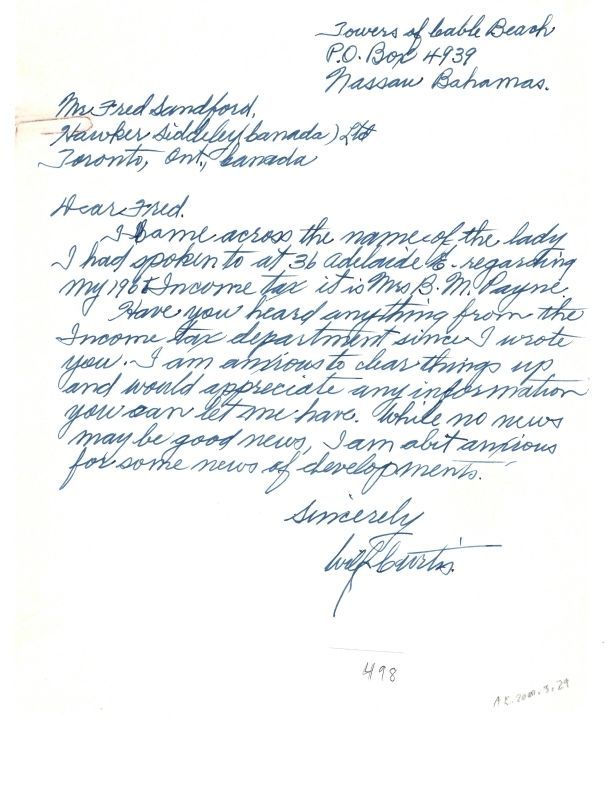 Towers of Cable Beach
P.O. Box 4939
Nassau Bahamas.
Mr Fred Sandford,
Hawker Siddeley (Canada) Ltd
Toronto, Ont., Canada
Dear Fred.
I came across the name of the lady
I had spoken to at 36 Adelaide E. regarding
my Income tax it is Mrs B. M. Payne
Have you heard anything from the
Income tax department since I wrote
you. I am anxious to clear things up
and would appreciate any information
you can let me have. While no news
may be good news, I am abit anxious
for some news of developments.
Sincerely
Curtis.
498